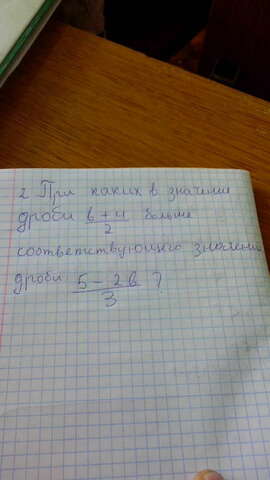 2 При каких в значение
дроби b + 4 / 2 больше
соответствующего значения
дроби 5 - 2b / 3 ?